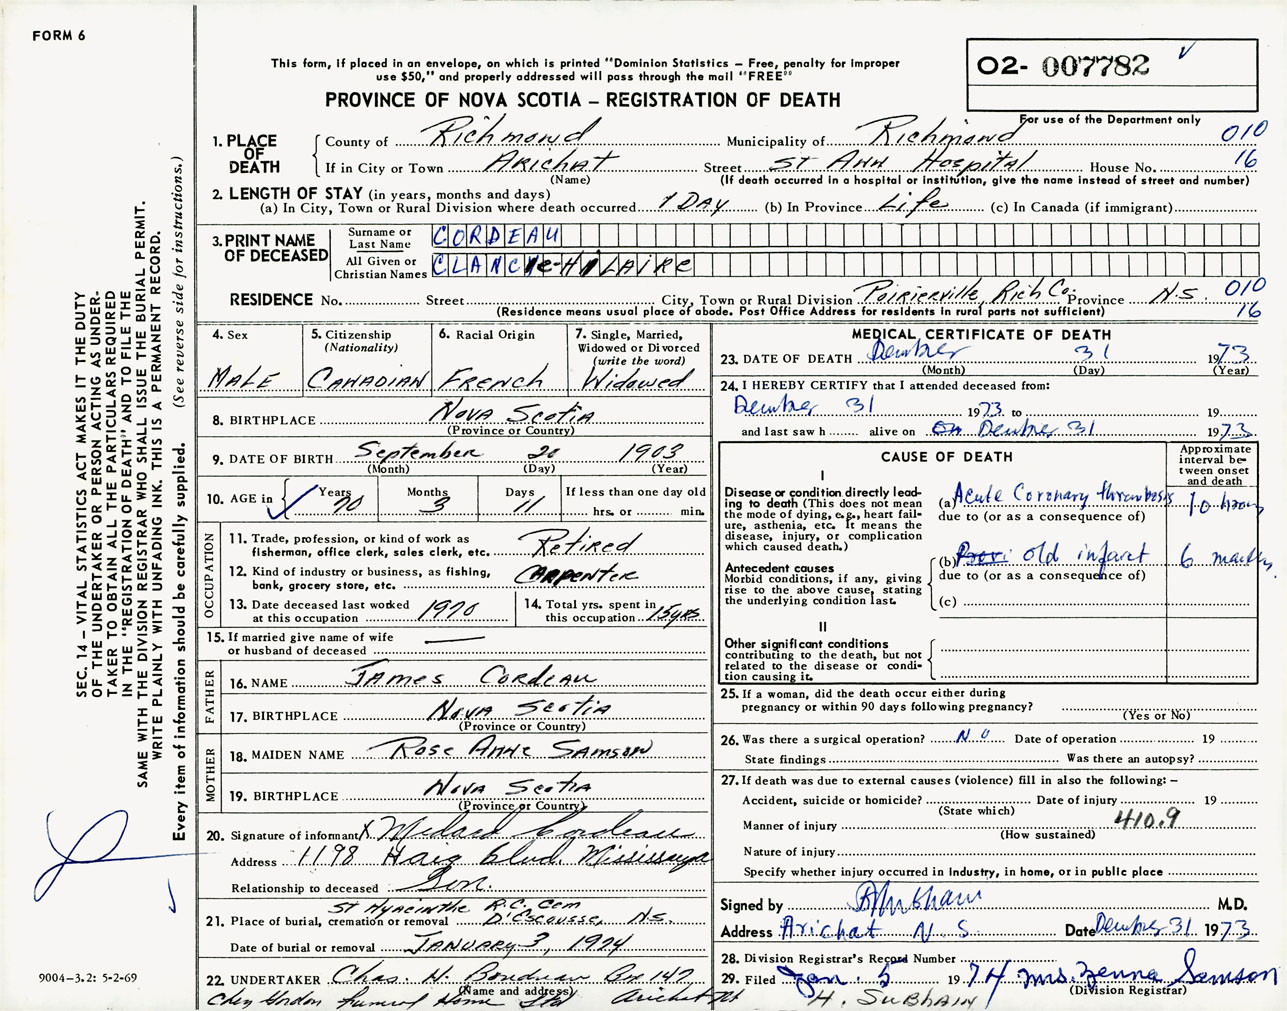 FORM 6
This form, if placed in an envelope, on which is printed "Dominion Statistics – Free, penalty for improper
use $50," and properly addressed will pass through the mail "FREE"
PROVINCE OF NOVA SCOTIA – REGISTRATION OF DEATH
O2- 007782
For use of the Department only
1. PLACE OF DEATH
County of Richmond Municipality of Richmond 010
If in City or Town ARICHAT Street ST ANN HOSPITAL House No. 16
(Name) (If death occurred in a hospital or institution, give the name instead of street and number)
2. LENGTH OF STAY (in years, months and days)
(a) In City, Town or Rural Division where death occurred 1 DAY (b) In Province Life (c) In Canada (if immigrant)
3. PRINT NAME OF DECEASED
Surname or Last Name CORDEAU
All Given or Christian Names CLANCIE-HILAIRE
RESIDENCE No. Street City, Town or Rural Division Poirierville, Rich Co. Province N.S. 010
(Residence means usual place of abode. Post Office Address for residents in rural parts not sufficient) 16
4. Sex
MALE
5. Citizenship
(Nationality)
CANADIAN
6. Racial Origin
French
7. Single, Married,
Widowed or Divorced
(write the word)
Widowed
8. BIRTHPLACE Nova Scotia
(Province or Country)
9. DATE OF BIRTH September 20 1903
(Month) (Day) (Year)
10. AGE in Years Months Days If less than one day old
70 3 11 hrs. or min.
OCCUPATION
11. Trade, profession, or kind of work as
fisherman, office clerk, sales clerk, etc. Retired
12. Kind of industry or business, as fishing,
bank, grocery store, etc. CARPENTER
13. Date deceased last worked
at this occupation 1970
14. Total yrs. spent in
this occupation 15yrs
15. If married give name of wife
or husband of deceased
FATHER
16. NAME JAMES CORDEAU
17. BIRTHPLACE NOVA SCOTIA
(Province or Country)
MOTHER
18. MAIDEN NAME Rose Anne SAMSON
19. BIRTHPLACE NOVA SCOTIA
(Province or Country)
20. Signature of informant X Cordeau
Address 1198 Haig blvd. Mississauga
Relationship to deceased Son.
St Hyacinthe R.C. Cem
21. Place of burial, cremation or removal D'Escousse, N.S.
Date of burial or removal JANUARY 3, 1974
22. UNDERTAKER Chas. H. Boudreau Box 147
(Name and address)
Funeral Home Ltd Arichat NS
MEDICAL CERTIFICATE OF DEATH
23. DATE OF DEATH December 31 1973
(Month) (Day) (Year)
24. I HEREBY CERTIFY that I attended deceased from:
December 31 1973 to 19
and last saw h alive on December 31 1973
CAUSE OF DEATH
Approximate
interval be-
tween onset
and death
I
Disease or condition directly lead-
ing to death (This does not
mean the mode of dying, e.g., heart fail-
ure, asthenia, etc. It means the
disease, injury, or complication
which caused death.)
(a) Acute Coronary thrombosis 10 hours
due to (or as a consequence of)
(b) old infarct 6 months
due to (or as a consequence of)
(c)
Antecedent causes
Morbid conditions, if any, giving
rise to the above cause, stating
the underlying condition last.
II
Other significant conditions
contributing to the death, but not
related to the disease or condi-
tion causing it.
25. If a woman, did the death occur either during
pregnancy or within 90 days following pregnancy?
(Yes or No)
26. Was there a surgical operation? NO Date of operation 19
State findings Was there an autopsy?
27. If death was due to external causes (violence) fill in also the following: –
Accident, suicide or homicide? Date of injury 19
(State which)
Manner of injury 410.9
(How sustained)
Nature of injury
Specify whether injury occurred in industry, in home, or in public place
Signed by M.D.
Address Arichat N.S Date December 31 1973
28. Division Registrar's Record Number
29. Filed Jan. 5 1974 Mrs. Zenna Samson
(Division Registrar)
H. SUBHANI
SEC. 14 – VITAL STATISTICS ACT MAKES IT THE DUTY
OF THE UNDERTAKER OR PERSON ACTING AS UNDER-
TAKER TO OBTAIN ALL THE PARTICULARS REQUIRED
IN THE "REGISTRATION OF DEATH" AND TO FILE THE
SAME WITH THE DIVISION REGISTRAR WHO SHALL ISSUE THE BURIAL PERMIT.
WRITE PLAINLY WITH UNFADING INK. THIS IS A PERMANENT RECORD.
Every item of information should be carefully supplied. (See reverse side for instructions.)
9004-3.2: 5-2-69